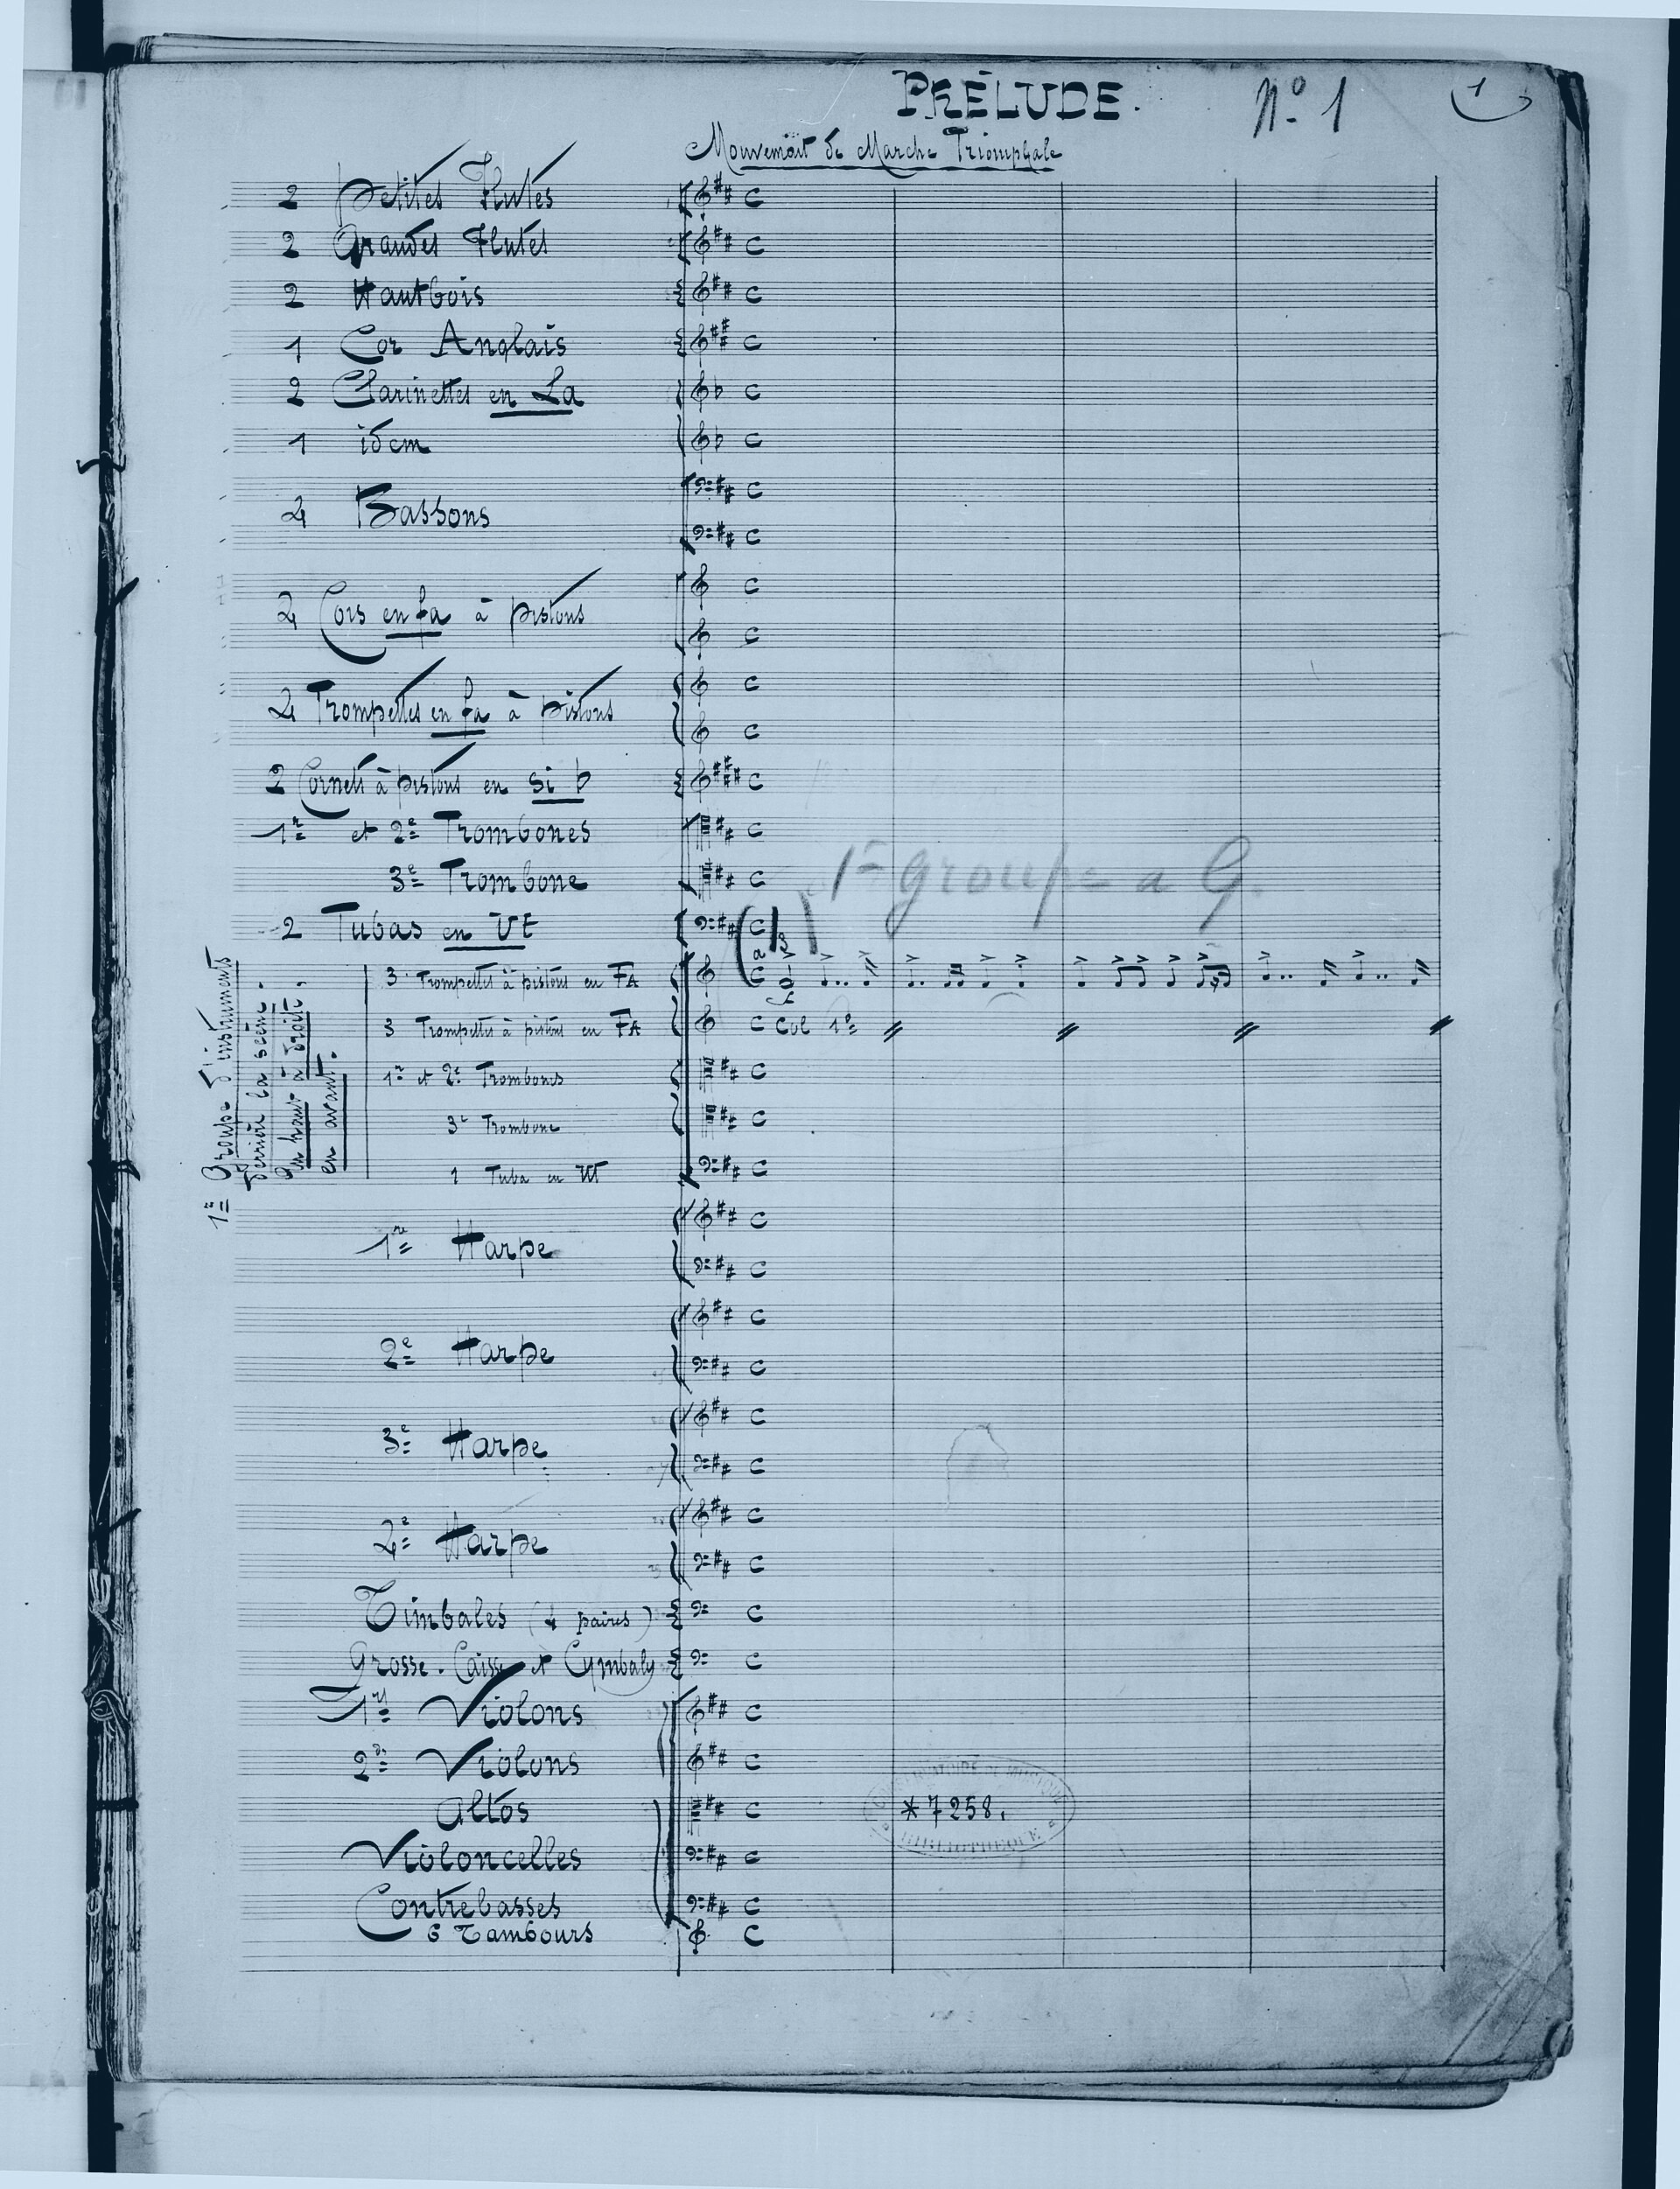 PRÉLUDE.
Nº 1
1
Mouvement de Marche Triomphale
2 Petites Flutes
2 Grandes Flutes
2 Hautbois
1 Cor Anglais
2 Clarinettes en La
1 idem
4 Bassons
4 Cors en fa à pistons
4 Trompettes en fa à pistons
2 Cornets à pistons en si b
1r et 2e Trombones
3e Trombone
1r groupe a G.
2 Tubas en UT
1r Groupe d'instruments
derrière la scène.
En haut à droite,
en avant.
3 Trompettes à pistons en FA
3 Trompettes à pistons en FA
Col 1o
1r et 2e Trombones
3e Trombone
1 Tuba en Ut
1re Harpe
2e Harpe
3e Harpe
4e Harpe
Timbales (4 paires)
Grosse-Caisse et Cymbales
1rs Violons
2ds Violons
Altos
CONSERVATOIRE DE MUSIQUE
*7258.
BIBLIOTHEQUE
Violoncelles
Contrebasses
6 Tambours